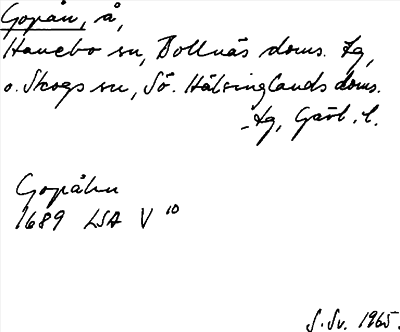 Gopån, å,
Hanebo sn, Bollnäs doms. tg,
o. Skogs sn, Sö. Hälsinglands doms.
-tg, Gävl. l.
Gopåhn
1689 LSA V 10
S. Sv. 1965.